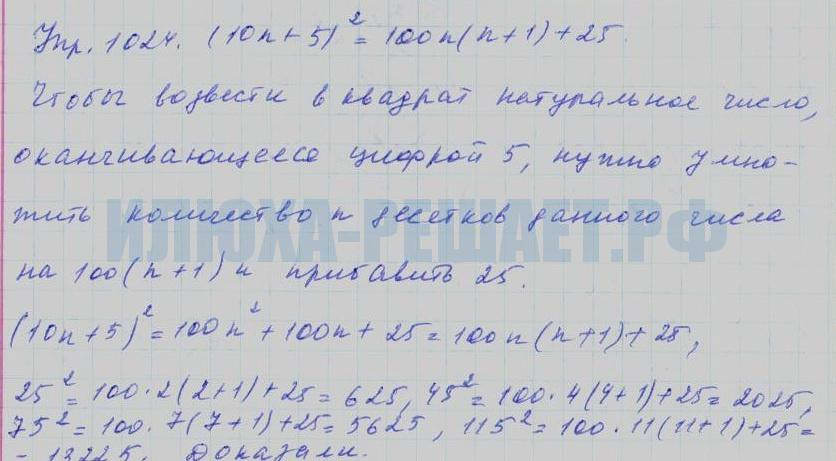 Упр. 1024. (10n+5)² = 100n(n+1)+25.
Чтобы возвести в квадрат натуральное число,
оканчивающееся цифрой 5, нужно умно-
жить количество n десятков данного числа
ИЛЮХА-РЕШАЕТ.РФ
на 100(n+1) и прибавить 25.
(10n+5)² = 100n² + 100n + 25 = 100n(n+1)+25,
25² = 100·2(2+1)+25 = 625, 45² = 100·4(4+1)+25 = 2025,
75² = 100·7(7+1)+25 = 5625, 115² = 100·11(11+1)+25 =
= 13225. Доказали.